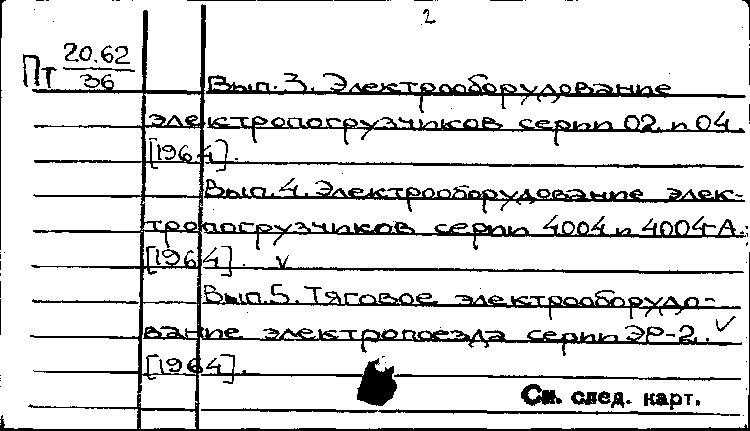 2
Пт 20.62
36
Вып. 3. Электрооборудование
электропогрузчиков серии 02 и 04.
[1964].
Вып. 4. Электрооборудование элек-
тропогрузчиков серии 4004 и 4004-А.
[1964]. v
Вып. 5. Тяговое электрооборудо-
вание электропоезда серии ЭР-2. v
[1964].
См. след. карт.